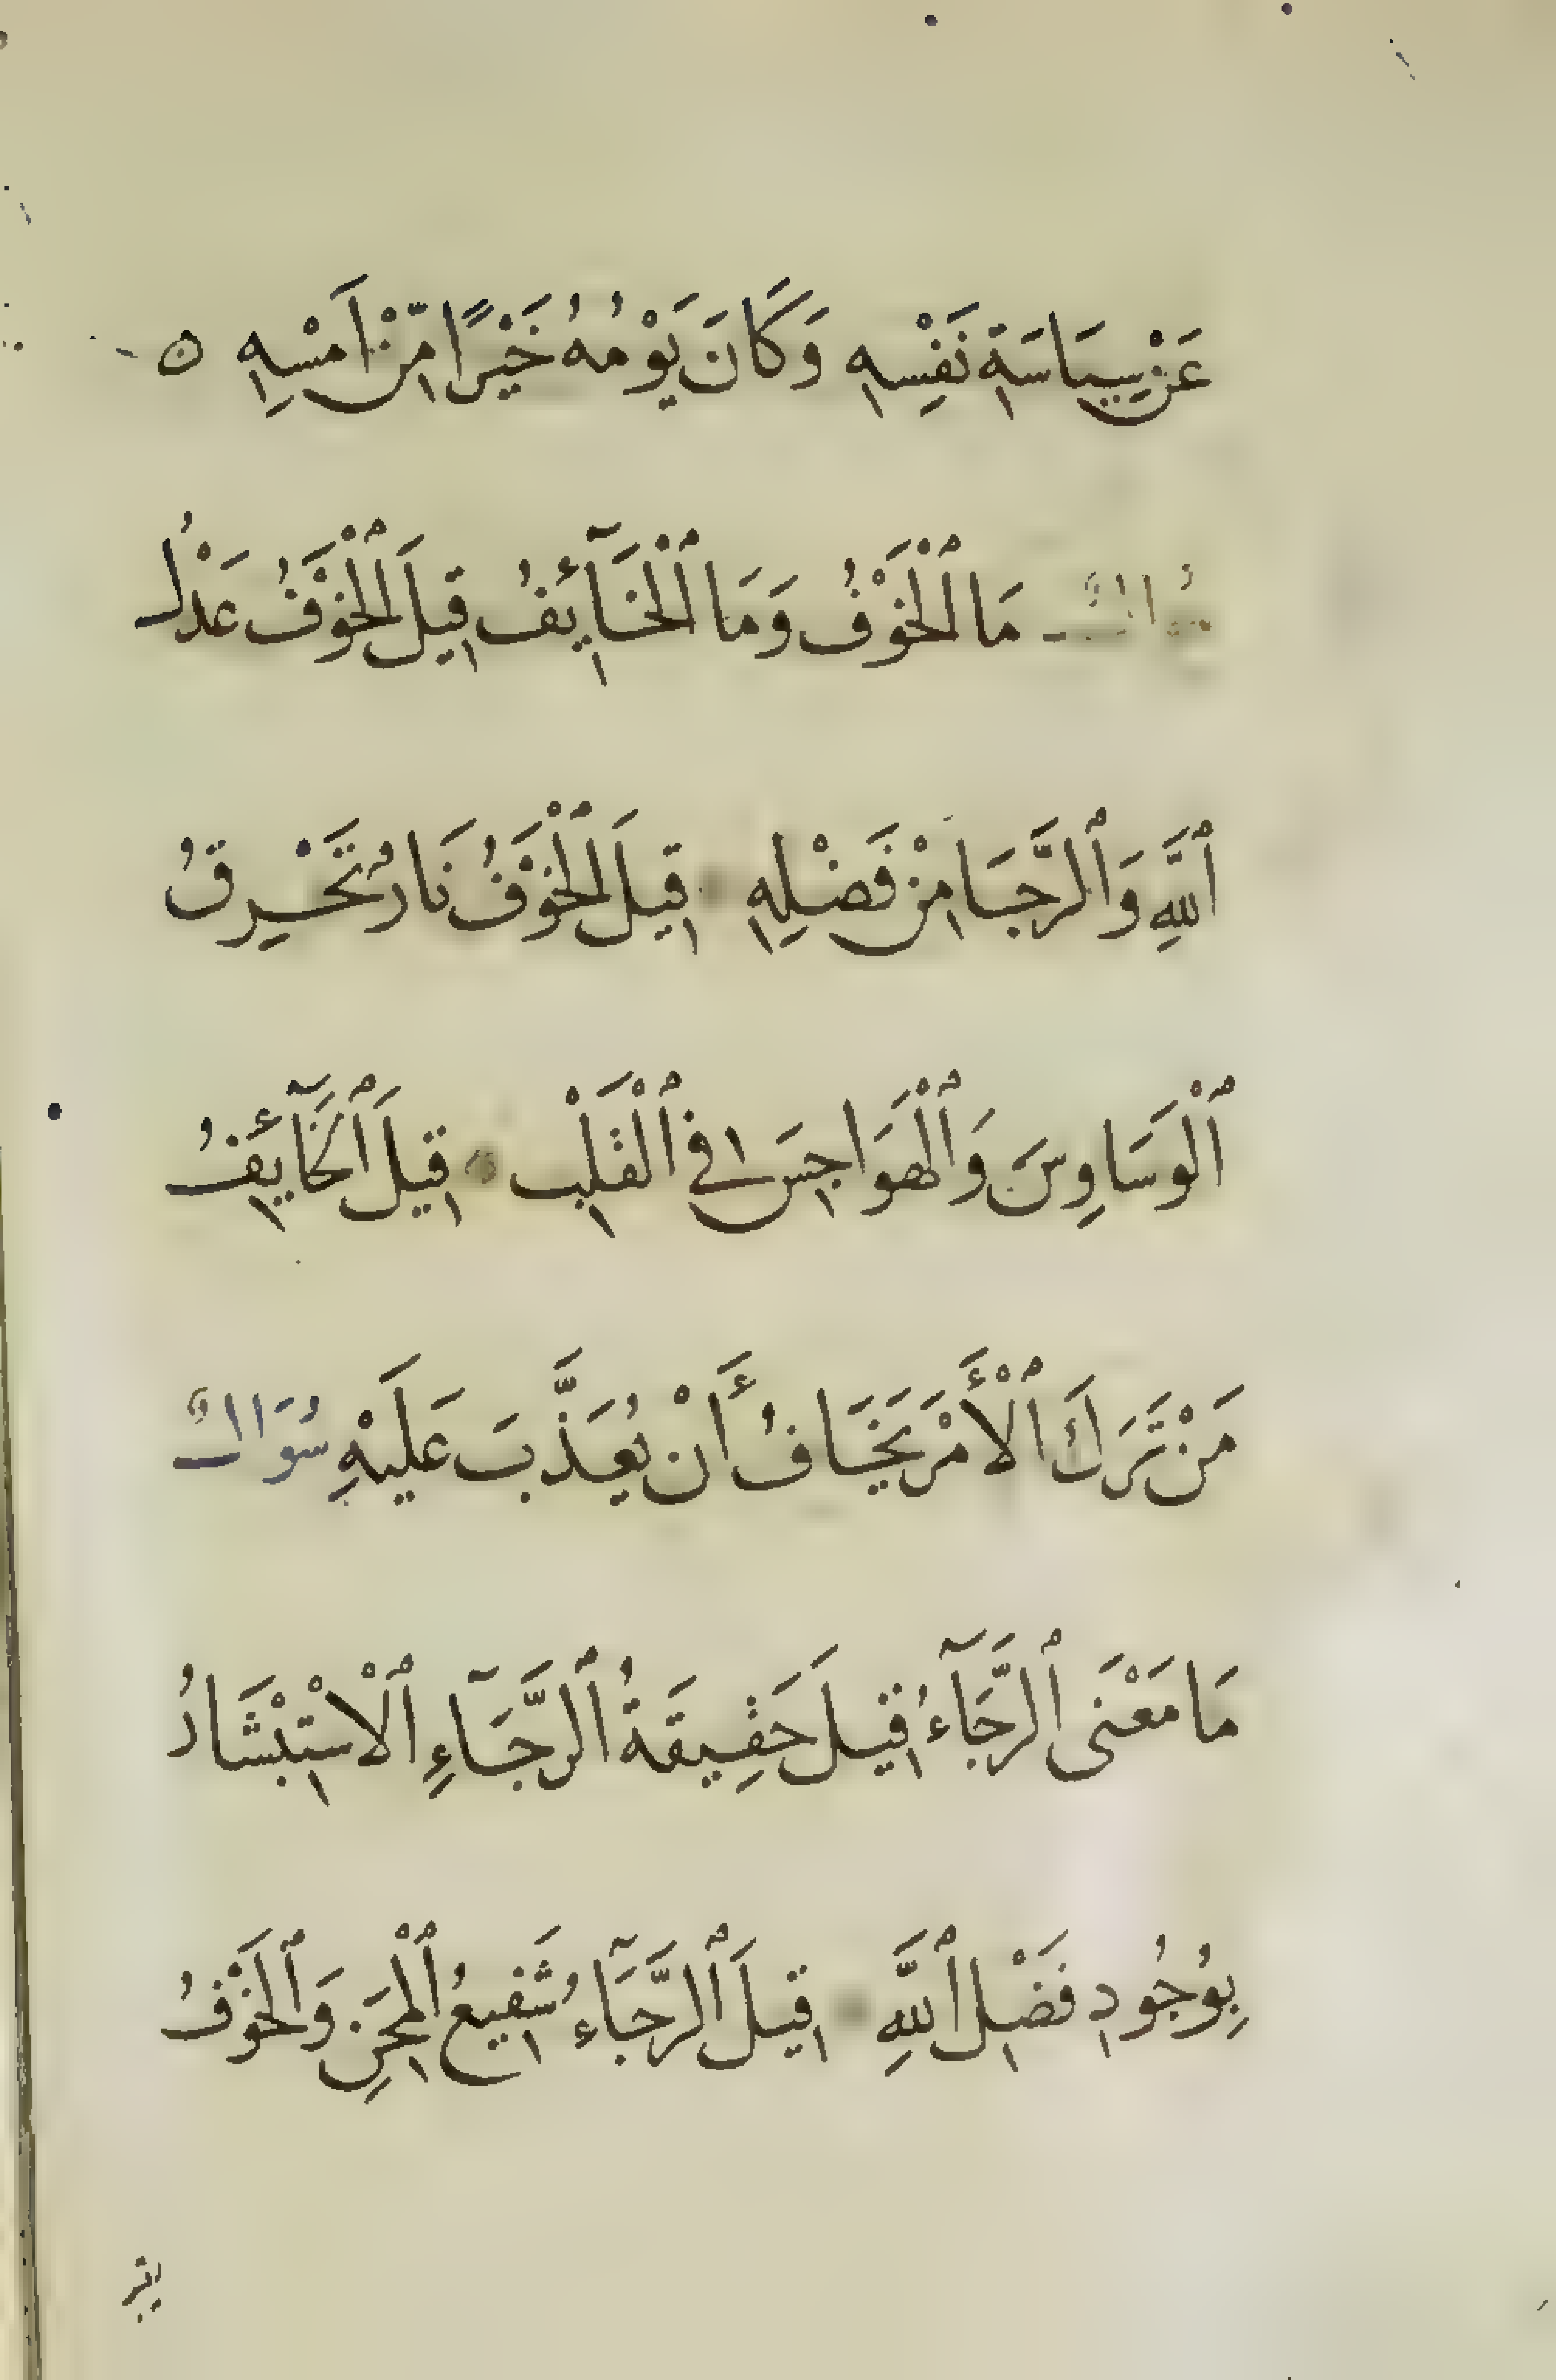 عَنْ سِيَاسَةِ نَفْسِهِ وَكَانَ يَوْمُهُ خَيْرًا مِّنْ اَمْسِهِ ه
سُوَالٌ مَا ٱلْخَوْفُ وَمَا ٱلْخَآئِفُ قِيلَ ٱلْخَوْفُ عَدْلُ
ٱللَّهِ وَٱلرَّجَا مِنْ فَضْلِهِ قِيلَ ٱلْخَوْفُ نَارٌ تَحْرِقُ
ٱلْوَسَاوِسَ وَٱلْهَوَاجِسَ فِي ٱلْقَلْبِ قِيلَ ٱلْخَآئِفُ
مَنْ تَرَكَ ٱلْأَمْرَ يَخَافُ أَنْ يُعَذَّبَ عَلَيْهِ سُوَالٌ
مَا مَعْنَى ٱلرَّجَآءُ قِيلَ حَقِيقَةُ ٱلرَّجَآءِ ٱلْاِسْتِبْشَارُ
بِوُجُودِ فَضْلِ ٱللَّهِ قِيلَ ٱلرَّجَآءُ شَفِيعُ ٱلْمِحَنِ وَٱلْخَوْفُ